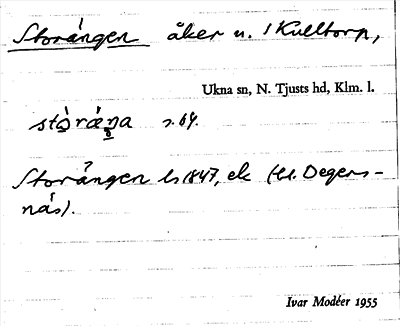 Storängen åker u. 1 Kulltorp,
Ukna sn, N. Tjusts hd, Klm. l.
s. 64.
Storängen ls 1847, ek (t. Degers-
näs).
Ivar Modéer 1955